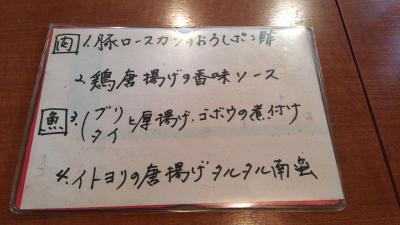 肉 1.豚ロースカツのおろしポン酢
2.鶏唐揚げの香味ソース
魚 3.(ブリ
タイ と厚揚げ.ゴボウの煮付け
4.イトヨリの唐揚げタルタル南蛮